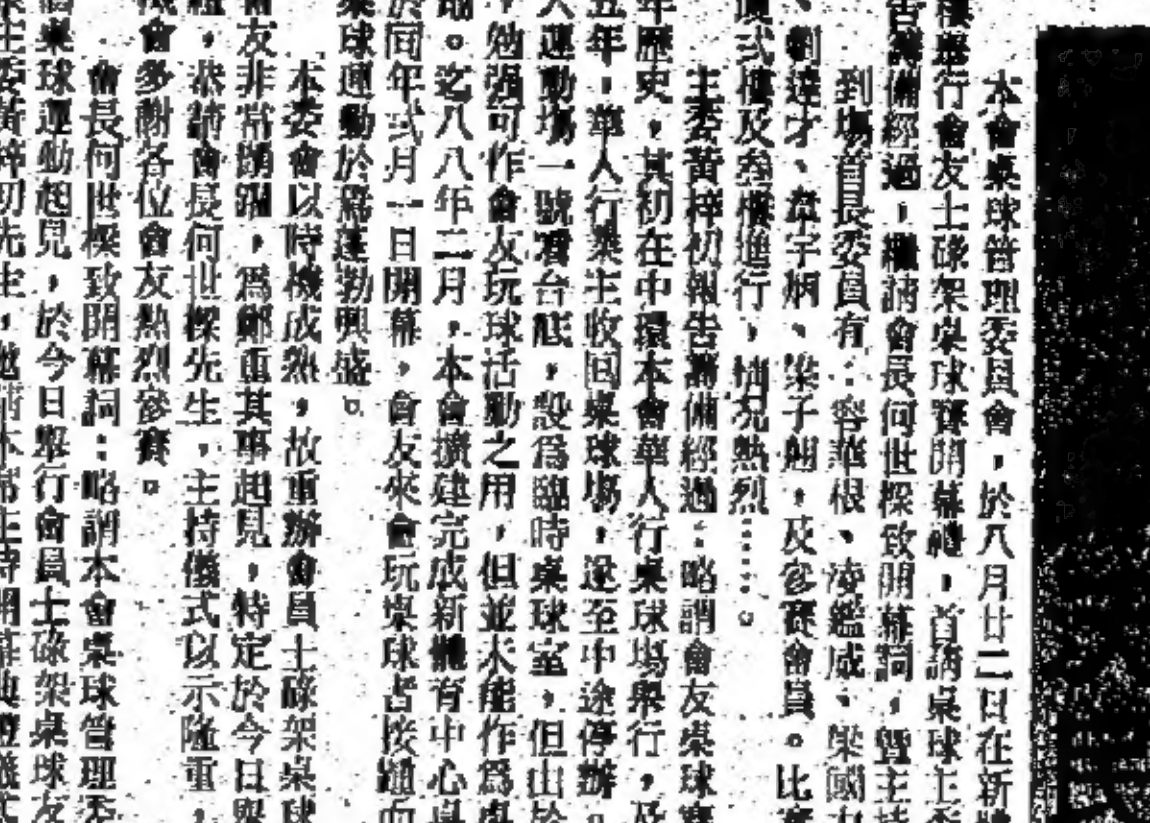 本會桌球管理委員會，於八月廿二日在新
樓應行會友士碌架桌球賽開幕禮，首請桌球主委
告籌備經過，繼請會長何世樑致開幕詞，暨主持
到場首長委員有：容華根、凌鑑威、梁國
、劉達才、韋宇炳、梁子翹，及參賽會員。比賽
樓弍樓及叁樓進行，情况熱烈……。
主委黃梓初報告籌備經過：略謂會友桌球賽
年歷史，其初在中環本會華人行桌球塲舉行，及
五年，華人行業主收回桌球塲，遂至中途停辦。
大運動塲一號看台底，設爲臨時桌球室，但由於
，勉强可作會友玩球活動之用，但並未能作爲桌
。迄八八年二月，本會擴建完成新體育中心桌
於同年弍月一日開幕，會友來會玩桌球者接踵而
桌球運動於蓬勃興盛。
本委會以時機成熟，故重辦會員士碌架桌球
會友非常踴躍，爲鄭重其事起見，特定於今日舉
，恭請會長何世樑先生，主持儀式以示隆重，
機會多謝各位會友熱烈參賽。
會長何世樑致開幕詞：略謂本會桌球管理委
桌球運動起見，於今日舉行會員士碌架桌球友
主委黃梓初先生，邀請本席主持開幕典禮儀式